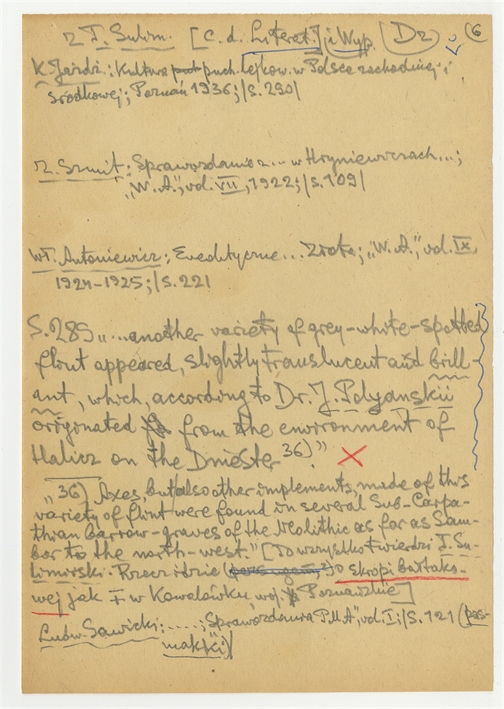 z T. Sulim. [C. d. Literat.] i Wyp. Dz 6
K. Jażdż.: Kultura puch. lejkow. w Polsce zachodniej i
środkowej; Poznań 1936; /s. 290/
Z. Szmit: Sprawozdanie z... w Hryniewiczach...;
"W. A.", vol. VII, 1922; /s. 109/
Wł. Antoniewicz: Eneolityczne... Złota; "W. A.", vol. IX,
1924-1925; /s. 221
S. 289 "...another variety of grey-white-spotted
flint appeared, slightly translucent and brill-
ant, which, according to Dr. J. Polyanskii
originated from the environment of
Halicz on the Dniestr 36)."
"36) Axes, but also other implements, made of this
variety of flint were found in several Sub-Carpa-
thian barrow-graves of the Neolithic as far as Sam-
bor to the north-west." [To wszystko twierdzi T. Su-
limirski. Rzecz idzie o skopi bużako-
wej jak w Kowalówku, woj. Poznańskie]
Ludw. Sawicki: .....; Sprawozdania P.M.A", vol. I; /s. 121